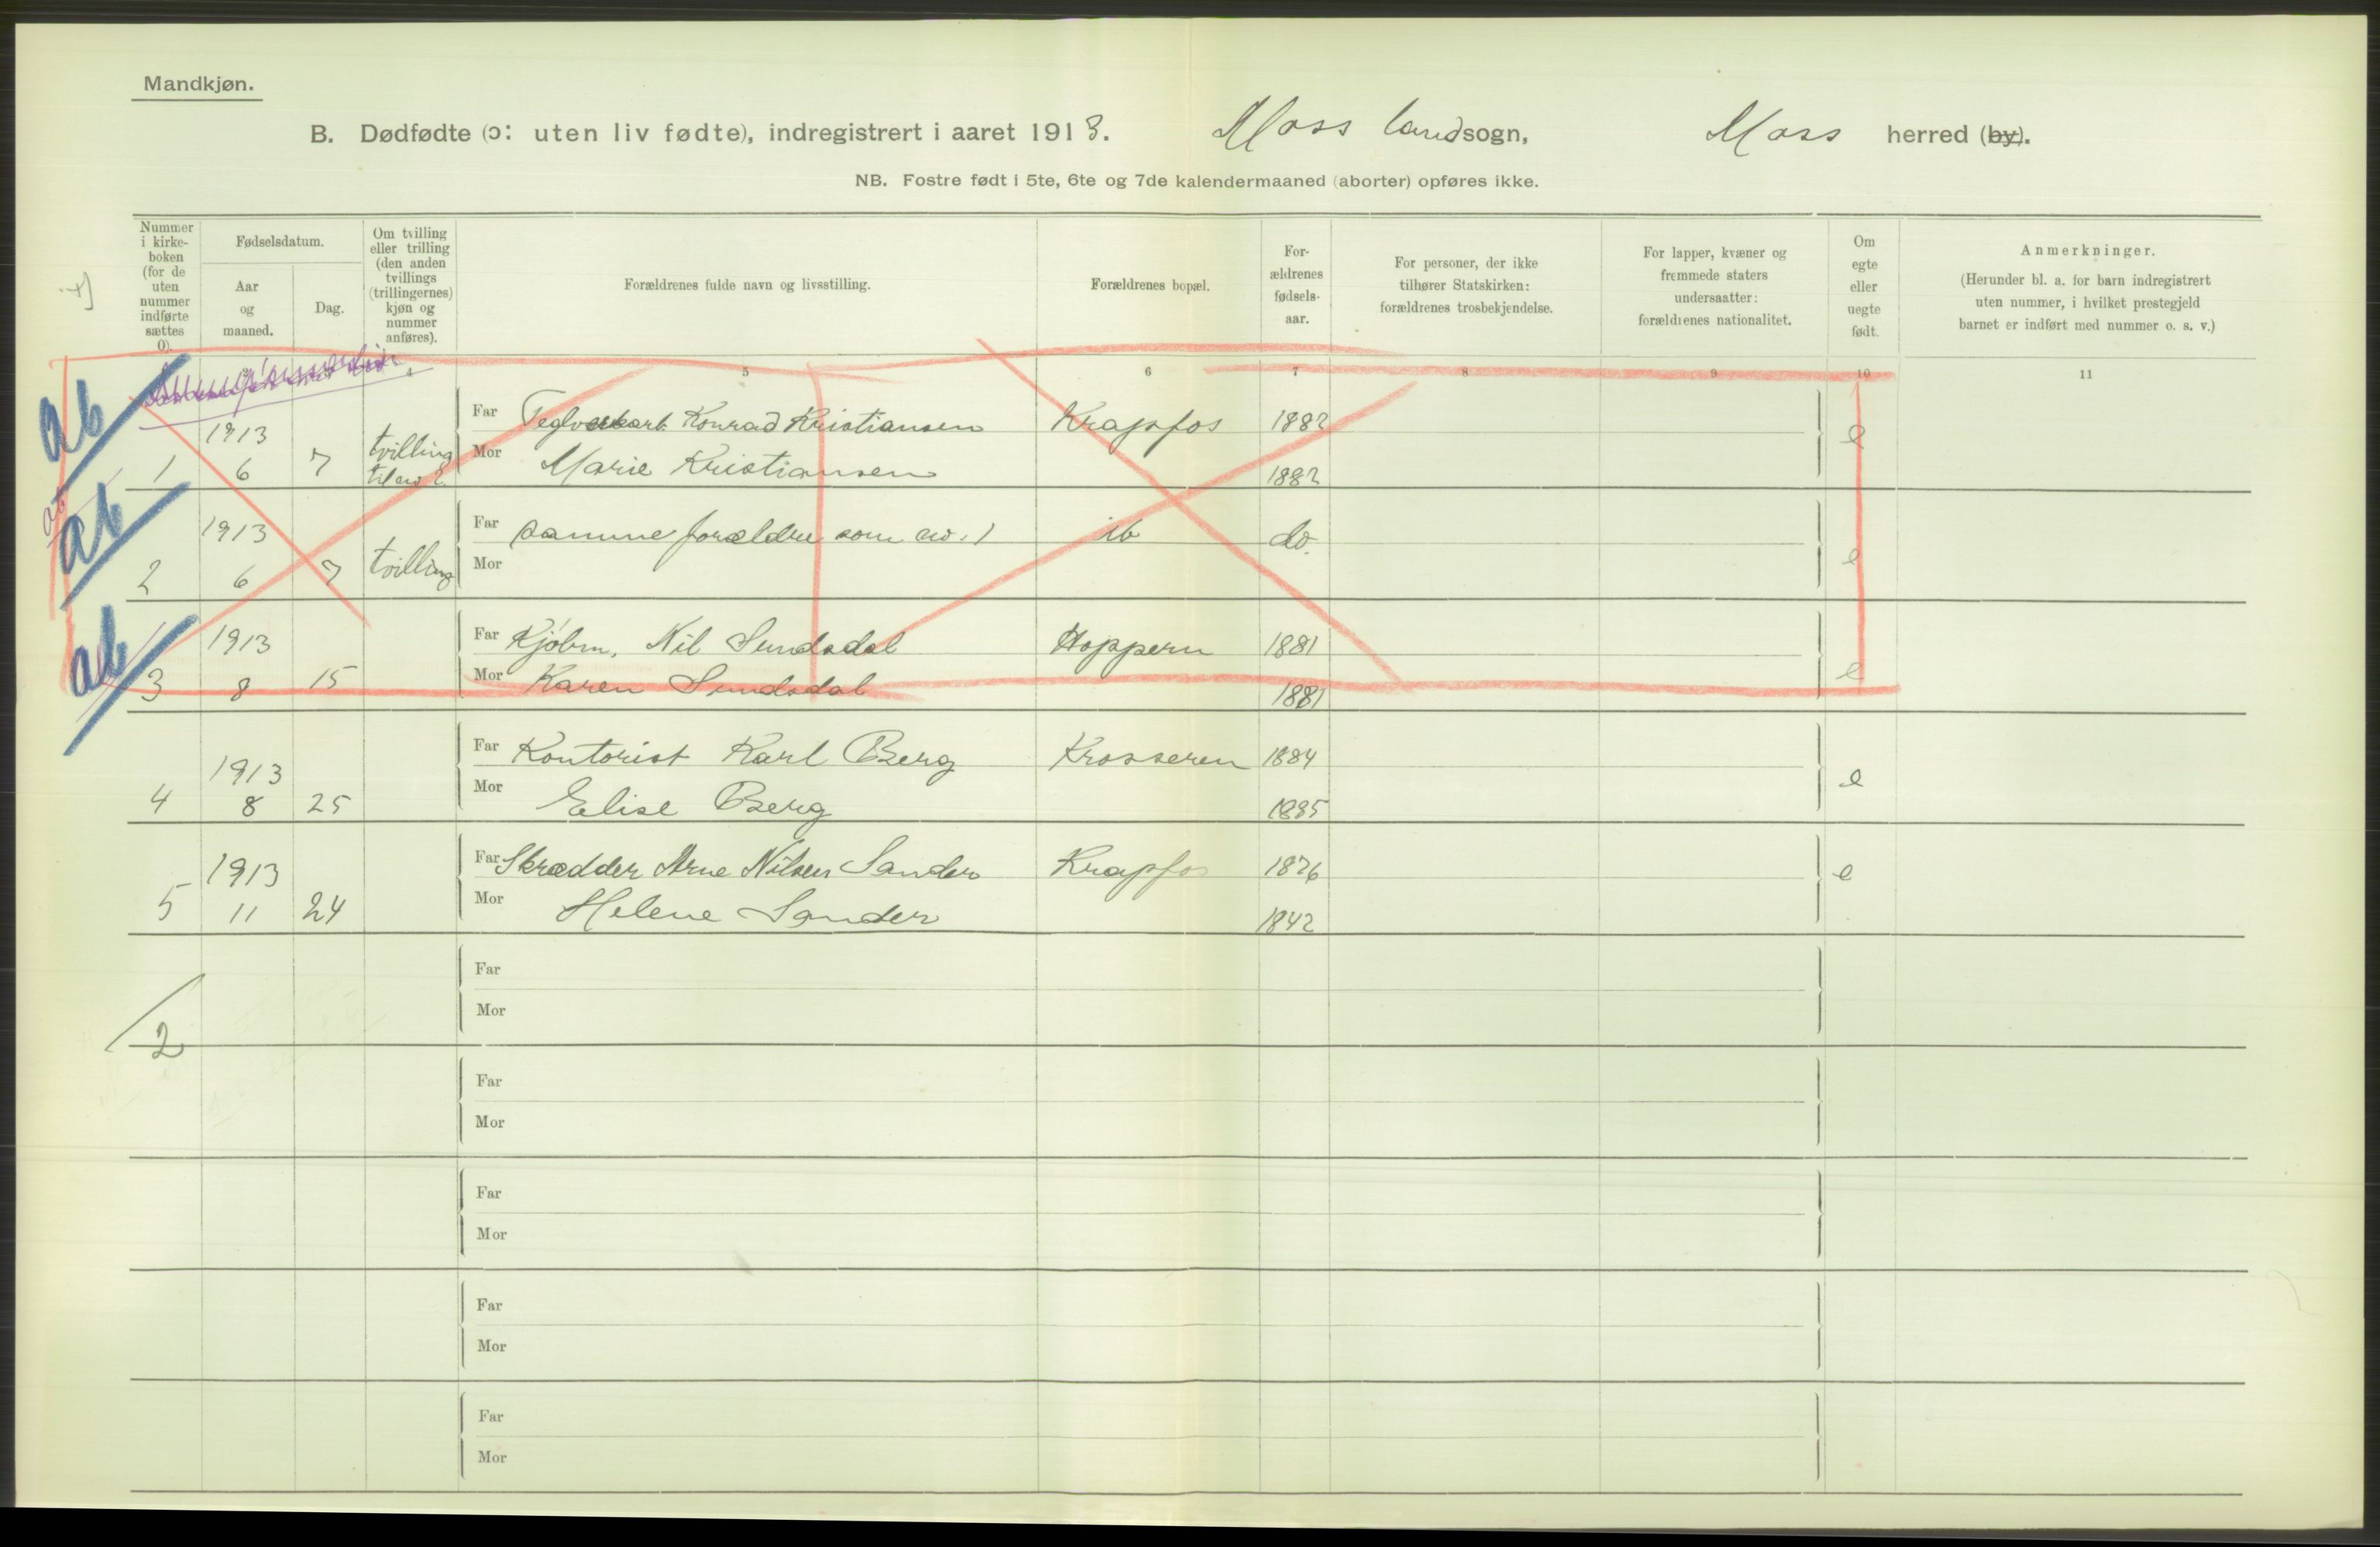 Mandkjøn.
B. Dødfødte (ɔ: uten liv fødte), indregistrert i aaret 1913. Moss landsogn, Moss herred (by).
NB. Fostre født i 5te, 6te og 7de kalendermaaned (aborter) opføres ikke.
Nummer
i kirke-
boken
(for de
uten
nummer
indførte
sættes
0).
Fødselsdatum.
Aar
og
maaned.
Dag.
Om tvilling
eller trilling
(den anden
tvillings
(trillingernes)
kjøn og
nummer
anføres).
Forældrenes fulde navn og livsstilling.
Forældrenes bopæl.
For-
ældrenes
fødsels-
aar.
For personer, der ikke
tilhører Statskirken:
forældrenes trosbekjendelse.
For lapper, kvæner og
fremmede staters
undersaatter:
forældrenes nationalitet.
Om
egte
eller
uegte
født.
Anmerkninger.
(Herunder bl. a. for barn indregistrert
uten nummer, i hvilket prestegjeld
barnet er indført med nummer o. s. v.)
4 5 6 7 8 9 10 11
ab
1 1913 6 7 tvilling til no 2.
Far Teglverkarb. Konrad Kristiansen Krapfos 1882 e
Mor Marie Kristiansen 1882
ab
ab
2 1913 6 7 tvilling
Far samme forældre som no. 1 ib do. e
Mor
ab
3 1913 8 15
Far Kjøbm. Nil Sundsdal Hoppern 1881 e
Mor Karen Sundsdal 1881
4 1913 8 25
Far Kontorist Karl Berg Krosseren 1884 e
Mor Elise Berg 1885
5 1913 11 24
Far Skrædder Arne Nilsen Sander Krapfos 1876 e
Mor Helene Sander 1842
2
Far
Mor
Far
Mor
Far
Mor
Far
Mor
Far
Mor